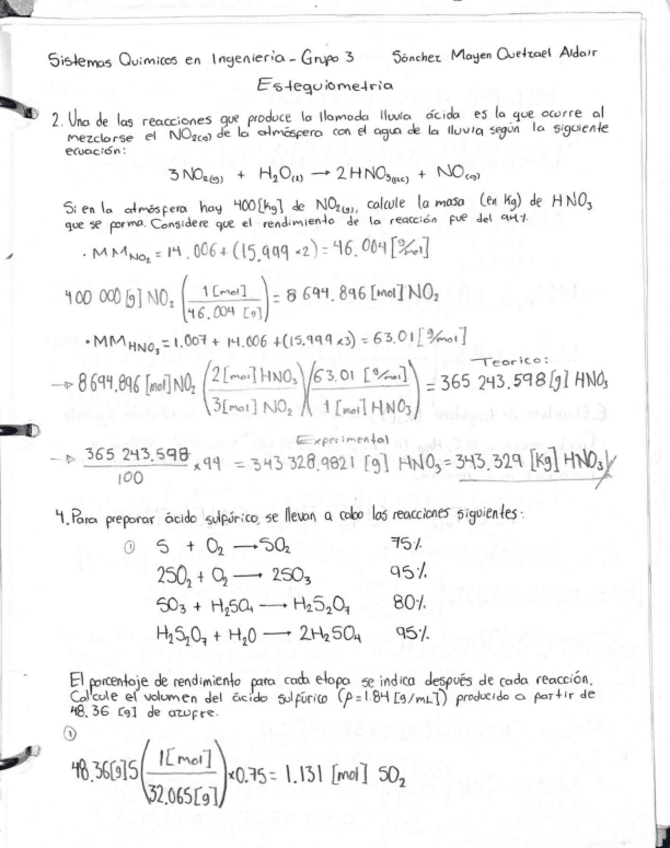 Sistemas Químicos en Ingeniería - Grupo 3 Sánchez Mayen Quetzael Aldair
Estequiometria
2. Una de las reacciones que produce la llamada lluvia ácida es la que ocurre al
mezclarse el NO₂(g) de la atmósfera con el agua de la lluvia según la siguiente
ecuación:
3NO₂(g) + H₂O(l) → 2HNO₃(ac) + NO(g)
Si en la atmósfera hay 400[kg] de NO₂(g), calcule la masa (en kg) de HNO₃
que se forma. Considere que el rendimiento de la reacción fue del 94%.
· MM NO₂ = 14.006 + (15.999 × 2) = 46.004 [g/mol]
400 000 [g] NO₂ (1 [mol] / 46.004 [g]) = 8 694.896 [mol] NO₂
· MM HNO₃ = 1.007 + 14.006 + (15.999 × 3) = 63.01 [g/mol]
Teorico:
→ 8694.896 [mol] NO₂ (2[mol] HNO₃ / 3[mol] NO₂) (63.01 [g/mol] / 1 [mol] HNO₃) = 365 243.598 [g] HNO₃
Experimental
→ 365 243.598 / 100 × 94 = 343 328.9821 [g] HNO₃ = 343.329 [Kg] HNO₃
4. Para preparar ácido sulfúrico, se llevan a cabo las reacciones siguientes:
① S + O₂ → SO₂ 75%
2SO₂ + O₂ → 2SO₃ 95%
SO₃ + H₂SO₄ → H₂S₂O₇ 80%
H₂S₂O₇ + H₂O → 2H₂SO₄ 95%
El porcentaje de rendimiento para cada etapa se indica después de cada reacción.
Calcule el volumen del ácido sulfúrico (ρ=1.84 [g/mL]) producido a partir de
48.36 [g] de azufre.
①
48.36[g]S (1[mol] / 32.065[g]) × 0.75 = 1.131 [mol] SO₂